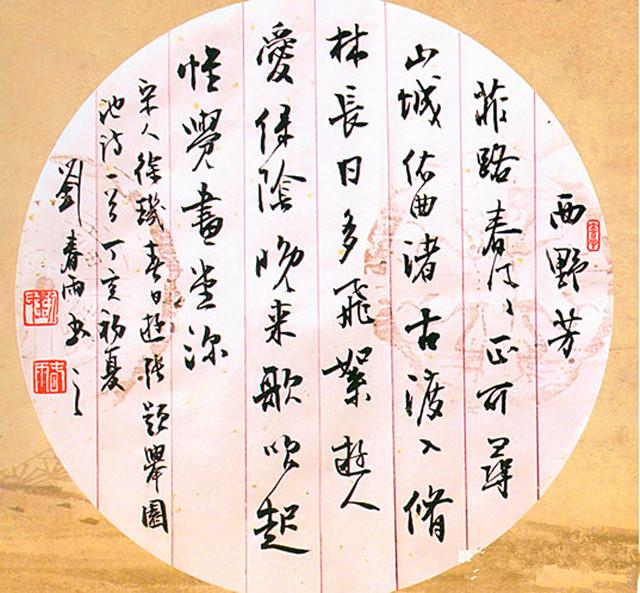 西野芳
菲路春風正可尋
山城依曲渚古渡入脩
林長日多飛絮遊人
愛綠陰晚来歌吹起
惟覺畫堂深
宋人徐璣春日遊張題舉園
池詩一首丁亥初夏
劉春雨书之